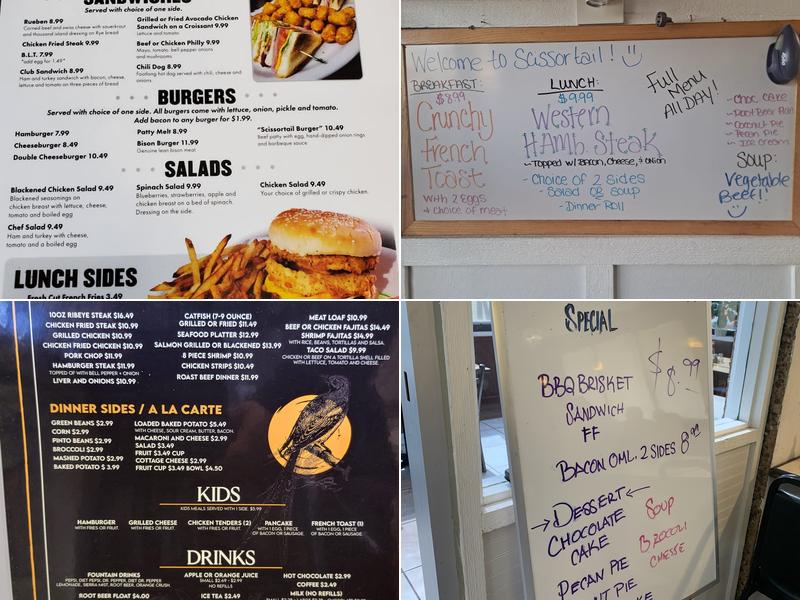 SANDWICHES
Served with choice of one side.
Rueben 8.99
Corned beef and swiss cheese with sauerkraut
and thousand island dressing on Rye bread
Chicken Fried Steak 9.99
B.L.T. 7.99
*add egg for 1.49*
Club Sandwich 8.99
Ham and turkey sandwich with bacon, cheese,
lettuce and tomato on three pieces of bread
Grilled or Fried Avocado Chicken
Sandwich on a Croissant 9.99
Lettuce and tomato
Beef or Chicken Philly 9.99
Mayo, tomato, bell pepper onions
and mushrooms
Chili Dog 8.99
Footlong hot dog served with chili, cheese and
onions
BURGERS
Served with choice of one side. All burgers come with lettuce, onion, pickle and tomato.
Add bacon to any burger for $1.99.
Hamburger 7.99
Cheeseburger 8.49
Double Cheeseburger 10.49
Patty Melt 8.99
Bison Burger 11.99
Genuine lean bison meat
"Scissortail Burger" 10.49
Beef patty with egg, hand-dipped onion rings
and barbeque sauce
SALADS
Blackened Chicken Salad 9.49
Blackened seasonings on
chicken breast with lettuce, cheese,
tomato and boiled egg
Chef Salad 9.49
Ham and turkey with cheese,
tomato and a boiled egg
Spinach Salad 9.99
Blueberries, strawberries, apple and
chicken breast on a bed of spinach.
Dressing on the side.
Chicken Salad 9.49
Your choice of grilled or crispy chicken.
LUNCH SIDES
Fresh Cut French Fries 3.49
Welcome to Scissortail!
BREAKFAST:
$8.99
Crunchy
French
Toast
with 2 Eggs
+ choice of meat
LUNCH:
$9.99
Western
HAmb. Steak
- Topped w/ Bacon, Cheese, & Onion
- Choice of 2 sides
- Salad or Soup
- Dinner Roll
Full
Menu
All DAY!
- Choc. Cake
- Root Beer Float
- Coconut Pie
- Pecan Pie
- Ice Cream
SOUP:
Vegetable
Beef!
10OZ RIBEYE STEAK $16.49
CHICKEN FRIED STEAK $10.99
GRILLED CHICKEN $10.99
CHICKEN FRIED CHICKEN $10.99
PORK CHOP $11.99
HAMBURGER STEAK $11.99
TOPPED OF WITH BELL PEPPER + ONION
LIVER AND ONIONS $10.99
CATFISH (7-9 OUNCE)
GRILLED OR FRIED $11.49
SEAFOOD PLATTER $12.99
SALMON GRILLED OR BLACKENED $13.99
8 PIECE SHRIMP $10.99
CHICKEN STRIPS $10.49
ROAST BEEF DINNER $11.99
MEAT LOAF $10.99
BEEF OR CHICKEN FAJITAS $14.49
SHRIMP FAJITAS $14.99
WITH RICE, BEANS, TORTILLAS AND SALSA.
TACO SALAD $9.99
CHICKEN OR BEEF ON A TORTILLA SHELL FILLED
WITH LETTUCE, TOMATO AND CHEESE.
DINNER SIDES / A LA CARTE
GREEN BEANS $2.99
CORN $2.99
PINTO BEANS $2.99
BROCCOLI $2.99
MASHED POTATO $2.99
BAKED POTATO $ 3.99
LOADED BAKED POTATO $5.49
WITH CHEESE, SOUR CREAM, BUTTER, BACON.
MACARONI AND CHEESE $2.99
SALAD $3.49
FRUIT $3.49 CUP
COTTAGE CHEESE $2.99
FRUIT CUP $3.49 BOWL $4.50
KIDS
KIDS MEALS SERVED WITH 1 SIDE. $5.99
HAMBURGER
WITH FRIES OR FRUIT.
GRILLED CHEESE
WITH FRIES OR FRUIT.
CHICKEN TENDERS (2)
WITH FRIES OR FRUIT.
PANCAKE
WITH 1 EGG, 1 PIECE
OF BACON OR SAUSAGE.
FRENCH TOAST (1)
WITH 1 EGG, 1 PIECE
OF BACON OR SAUSAGE.
DRINKS
FOUNTAIN DRINKS
PEPSI, DIET PEPSI, DR. PEPPER, DIET DR. PEPPER
LEMONADE, SIERRA MIST, ROOT BEER, ORANGE CRUSH.
ROOT BEER FLOAT $4.00
APPLE OR ORANGE JUICE
SMALL $2.49 - $2.99
NO REFILLS
ICE TEA $2.49
HOT CHOCOLATE $2.99
COFFEE $2.49
MILK (NO REFILLS)
SPECIAL
$8.99
BBQ BRISKET
SANDWICH
FF
BACON OML. 2 SIDES 8.99
DESSERT
CHOCOLATE
CAKE
PECAN PIE
SOUP
BROCOLI
CHEESE